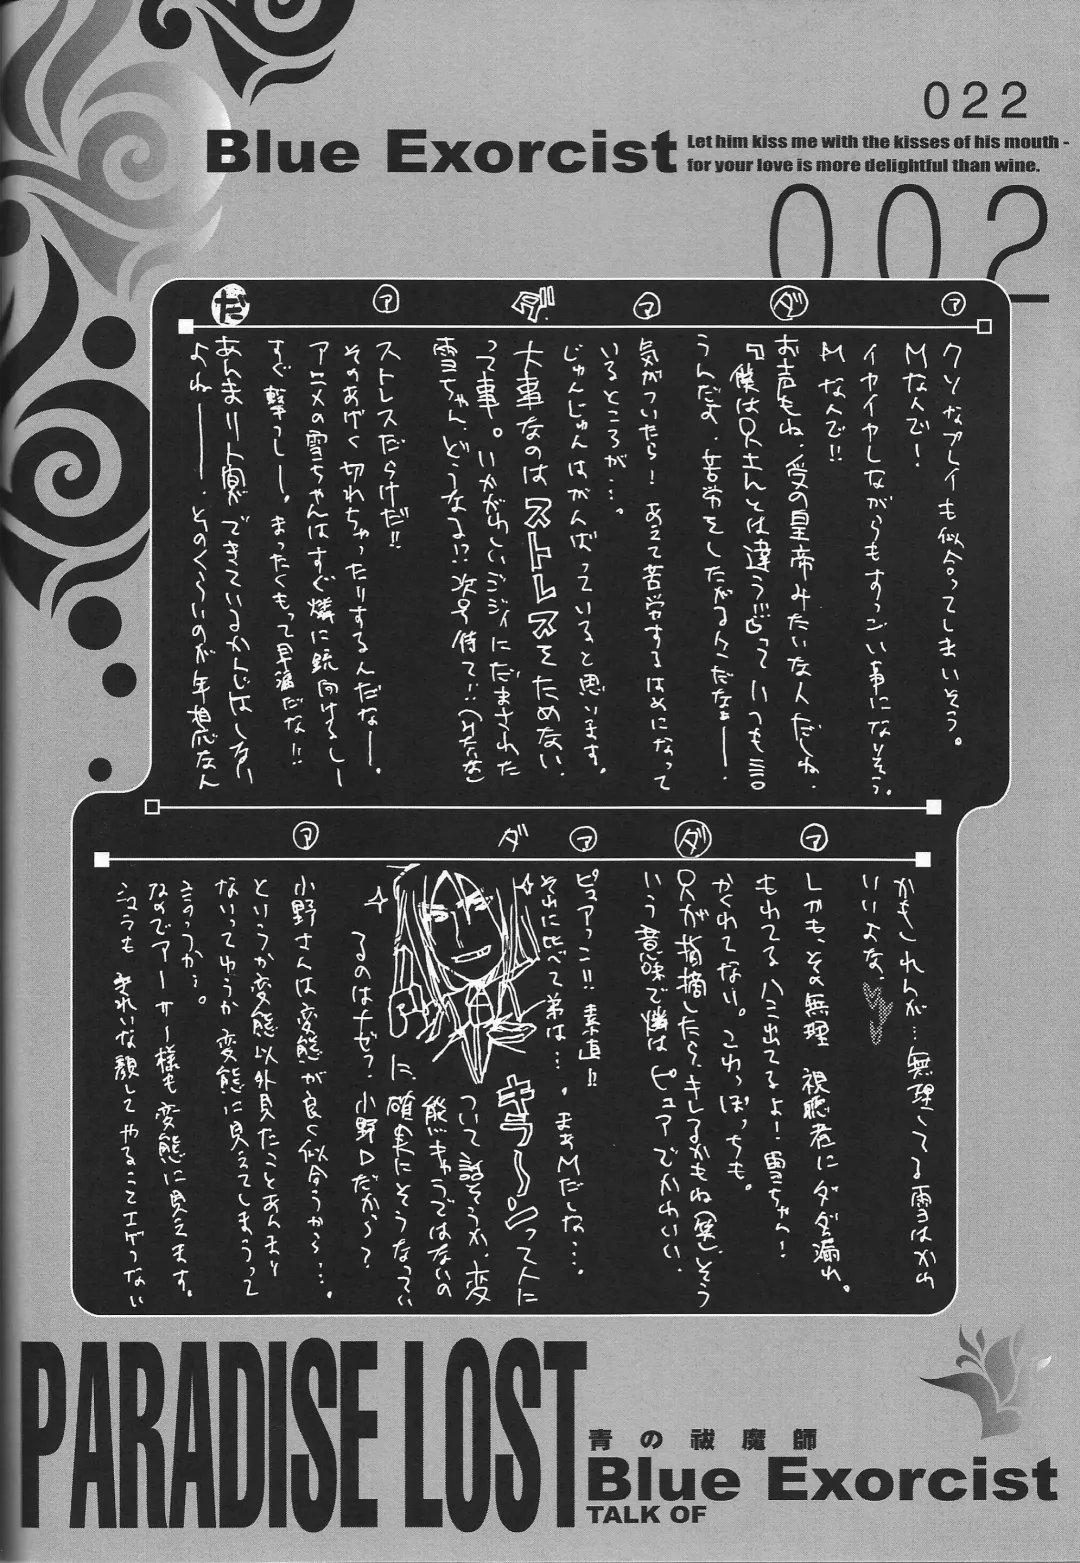 022
Blue Exorcist
Let him kiss me with the kisses of his mouth -
for your love is more delightful than wine.
002
ア
クソなプレイも似合ってしまいそう。
Mなんで!
イヤイヤしながらもすっごい事になりそう。
Mなんで!!
ダ
お声もね、受の皇帝みたいな人だしね。
『僕は兄さんとは違う!!』っていつも言
うんだよ、苦労をしたがる人だなぁー。
ア
気がついたら!あえて苦労するはめになって
いるところが…。
じゅんじゅんはがんばっていると思います。
ダ
大事なのはストレスをためない。
って事。いかがわしいジジィにだまされた
雪ちゃん、どうなる!?次号待て!(みたいな)
ア
ストレスだらけだ!!
そのあげく切れちゃったりするんだなー。
アニメの雪ちゃんはすぐ燐に銃向けるしー
すぐ撃つしー。まったくもって早漏だな!!
だ
あんまり人間ができているかんじはしない
よねー。そのくらいのが年相応なん
かもしれんが…無理してる雪はかわ
いいよな、
ア
しかも、その無理 視聴者にダダ漏れ。
もれてるハミ出てるよ!雪ちゃん!
かくれてない。これっぽっちも。
ダ
兄が指摘したら、キレるかもね(笑)そう
いう意味で僕はピュアでかわいい。
ア
ピュアっ二!!素直!!
ダ
それに比べて弟は…。まぁMだしな…。
キラーンって人に
ついて話そうか、変
態キャラではないの
に、確実にそうなってい
るのはナゼ?小野Dだから?
ア
小野さんは変態が良く似合うから…。
というか変態以外見たことあんまり
ないってゆうか変態に見えてしまうって
言うか…。
なのでアーサー様も変態に見えます。
きれいな顔してやることエゲつない
PARADISE LOST
青の祓魔師
Blue Exorcist
TALK OF